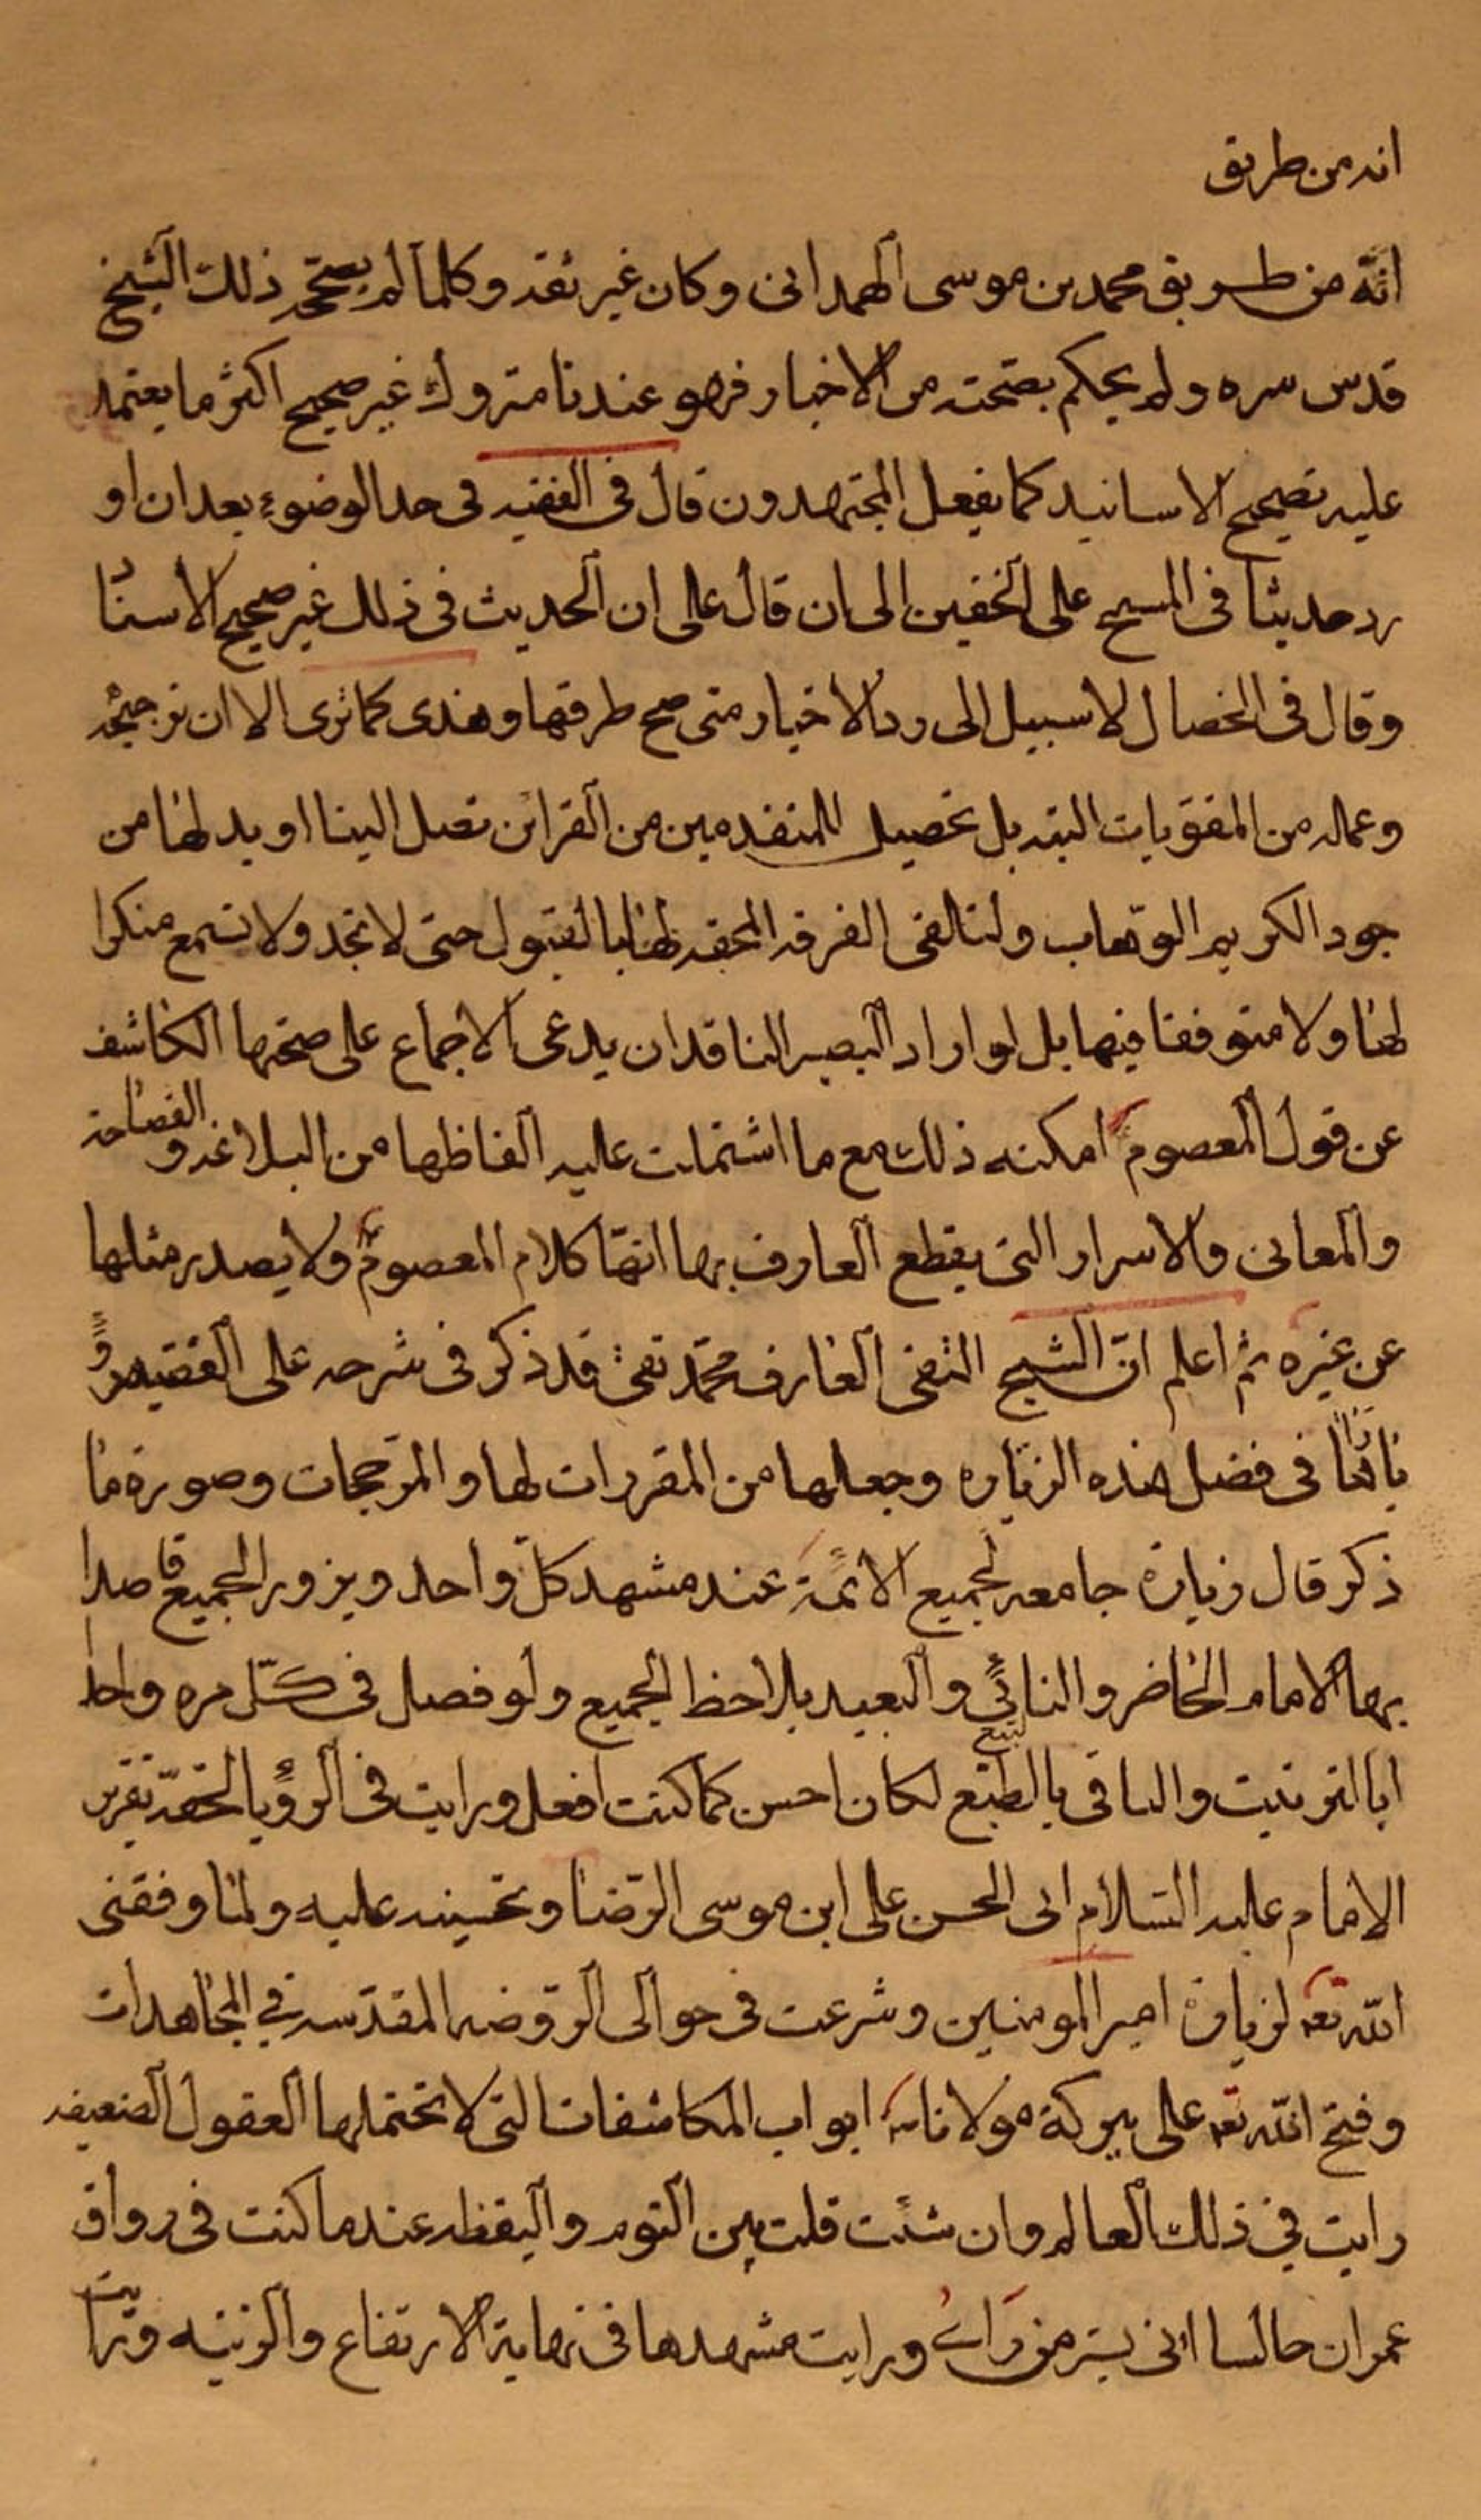 انه من طريق
انّه من طريق محمد بن موسى الهمدانى وكان غير ثقه وكلما لم يصحّحه ذلك الشيخ
قدس سره ولم يحكم بصحته من الاخبار فهو عندنا متروك غير صحيح اكثر ما يعتمد
عليه تصحيح الاسانيد كما يفعل المجتهدون قال فى الفقيه فى حد الوضوء بعد ان او
رد حديثا فى المسح على الخفين الى ان قال على ان الحديث فى ذلك غير صحيح الاسنا
وقال فى الخصال لا سبيل الى رد الاخبار متى صح طرقها وهذى كما ترى الا ان ترجيحه
وعمله من المقويات البته بل تحصيل للمتقدمين من القرائن تصل الينا او بدلها من
جود الكريم الوهاب ولتلقى الفرقه المحقه لها بالقبول حتى لا تجد ولا تسمع منكرا
لها ولا متوقفا فيها بل لو اراد البصير الناقد ان يدعى الاجماع على صحتها الكاشف
عن قول المعصوم امكنه ذلك مع ما اشتملت عليه الفاظها من البلاغه و الفصاحة
والمعانى والاسرار التى يقطع العارف بها انها كلام المعصوم ولا يصدر مثلها
عن غيره ثم اعلم انّ الشيخ التقى العارف محمّد تقى قد ذكر فى شرحه على الفقيه
فى فضل هذه الزياره وجعلها من المقررات لها والمرجحات وصورة ما
ذكر قال زيارة جامعه لجميع الائمة عند مشهد كل واحد ويزور الجميع قاصدا
بها الامام الحاضر والنائى والبعيد يلاحظ الجميع ولو فصل فى كلّ مره واحد
ابا الترتيب والباقى بالتبع لكان احسن كما كنت افعل ورايت فى الرؤيا الحقّه تقرير
الامام عليه السلام ابى الحسن على ابن موسى الرّضا وتحسينه عليه ولما وفقنى
الله تعه لزيارة امير المومنين وشرعت فى حوالى الروضه المقدسه فى المجاهدات
وفتح الله تعه على ببركة مولانا ابواب المكاشفات التى لا تحتملها العقول الضعيفه
رايت فى ذلك العالم وان شئت قلت بين النوم واليقظه عند ما كنت فى رواق
عمران جالسا انى بسر من راى ورايت مشهدها فى نهاية الارتفاع والزينه ورايت